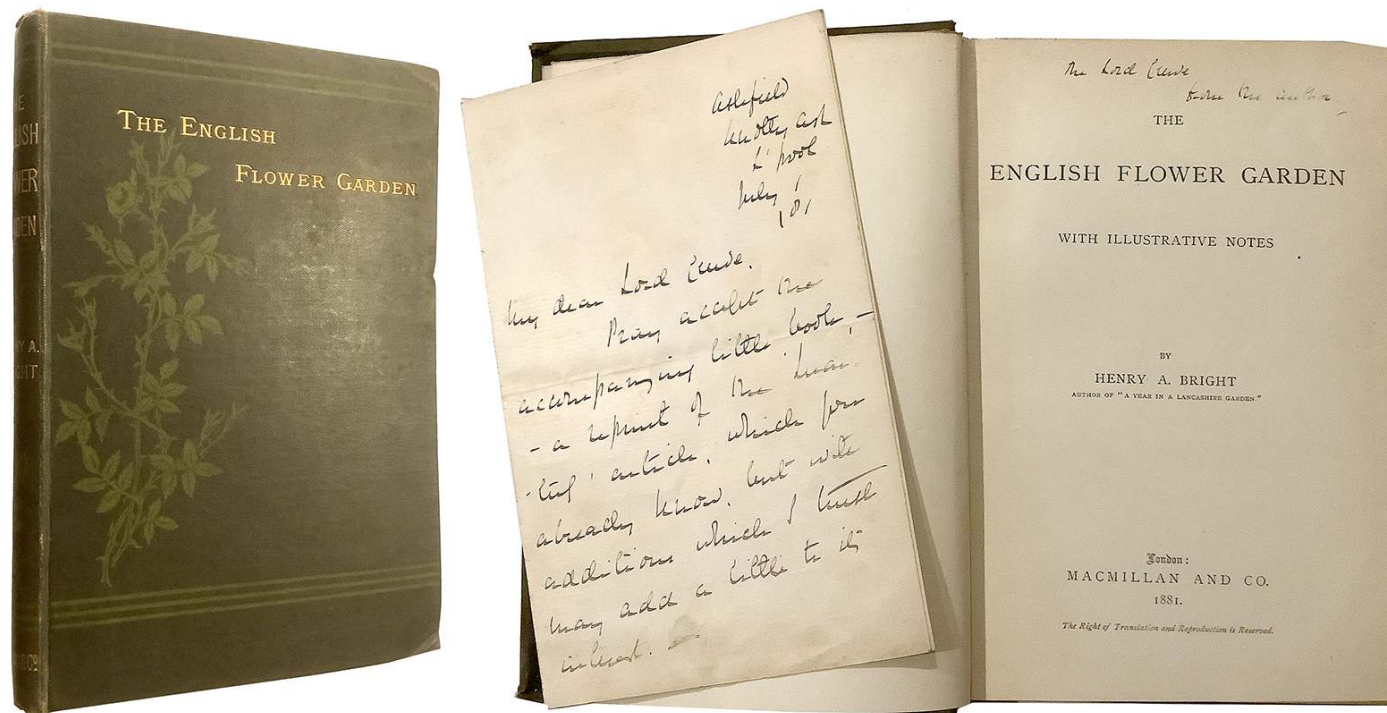 THE ENGLISH
FLOWER GARDEN
Ashfield
Knotty Ash
L'pool
July 1
'81
My dear Lord Crewe,
Pray accept the
accompanying little book, –
– a reprint of the 'Quar-
-terly' article, which you
already know, but with
additions which I trust
may add a little to its
interest. –
The Lord Crewe
from the author
THE
ENGLISH FLOWER GARDEN
WITH ILLUSTRATIVE NOTES
BY
HENRY A. BRIGHT
AUTHOR OF "A YEAR IN A LANCASHIRE GARDEN."
London:
MACMILLAN AND CO.
1881.
The Right of Translation and Reproduction is Reserved.